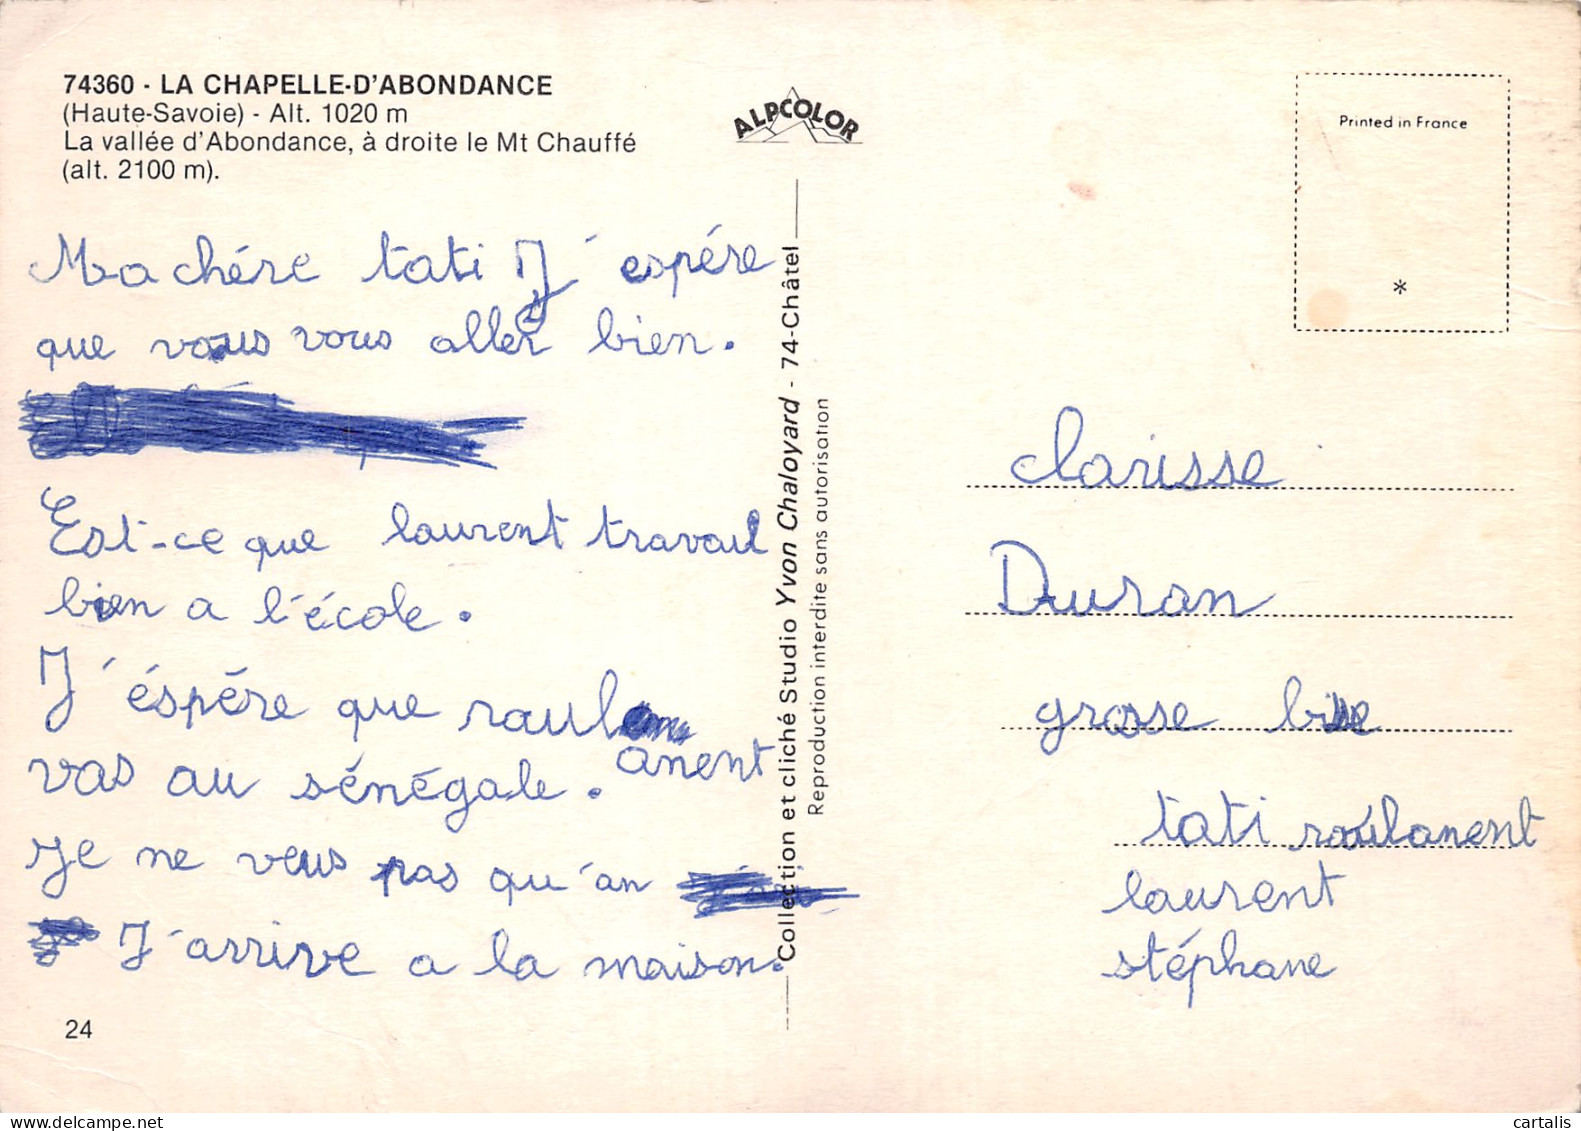 74360 - LA CHAPELLE-D'ABONDANCE
(Haute-Savoie) - Alt. 1020 m
La vallée d'Abondance, à droite le Mt Chauffé
(alt. 2100 m).
ALPCOLOR
Printed in France
*
Ma chére tati J'espére
que vous vous aller bien.
Est-ce que laurent travail
bien a l'école.
J'éspére que raul
anent
vas au sénégale.
Je ne veus pas qu'an
J'arrive a la maison.
24
Collection et cliché Studio Yvon Chaloyard - 74-Châtel
Reproduction interdite sans autorisation
Clarisse
Duran
grosse bise
tati roulanent
laurent
stéphane
cartalis